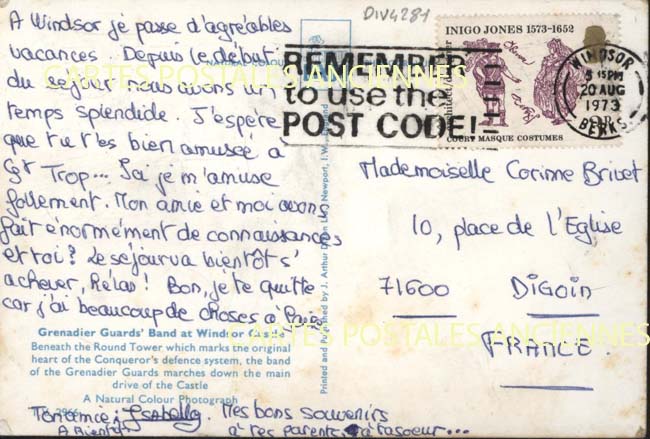 DIV4281
A Windsor je passe d'agréables
vacances. Depuis le début
du séjour nous avons un
temps splendide. J'espère
que tu t'es bien amusée a
Trop... Ici je m'amuse
follement. Mon amie et moi avons
fait énormément de connaissances
et toi? Le séjour va bientôt s'
achever, Hélas! Bon, je te quitte
car j'ai beaucoup de choses à
Grenadier Guards' Band at Windsor Castle
Beneath the Round Tower which marks the original
heart of the Conqueror's defence system, the band
of the Grenadier Guards marches down the main
drive of the Castle
A Natural Colour Photograph
Ton amie: Isabelle. Mes bons souvenirs
A Bientôt à tes parents, à ta soeur...
NATURAL COLOUR
Printed and Published by J. Arthur Dixon Ltd., Newport, I.W., England
REMEMBER
to use the
POST CODE!
INIGO JONES 1573-1652
COURT MASQUE COSTUMES
WINDSOR
5 15PM
20 AUG
1973
BERKS
Mademoiselle Corinne Brivet
10, place de l'Eglise
71600 DIGOIN
FRANCE.
CARTES POSTALES ANCIENNES
CARTES POSTALES ANCIENNES